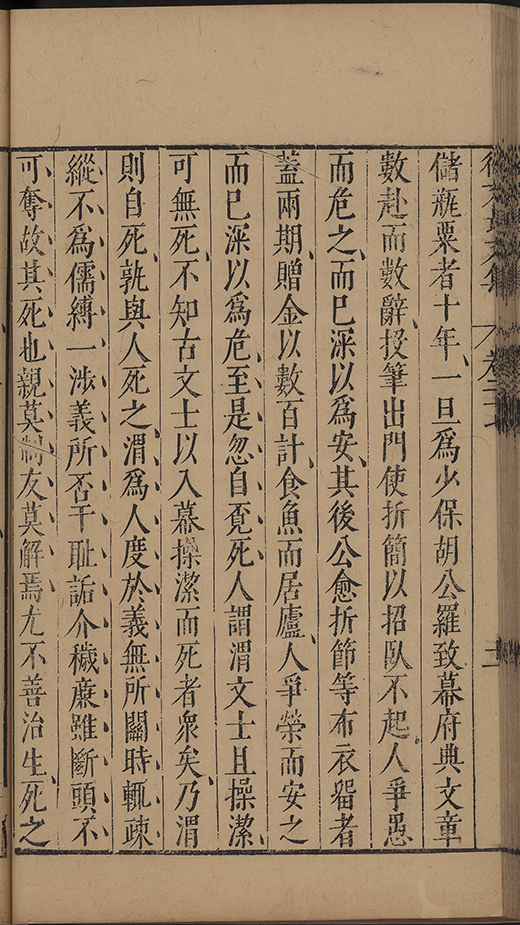 儲缾粟者十年、一旦爲少保胡公羅致幕府典文章
數赴而數辭、投筆出門使折簡以招臥不起人爭愚
而危之、而巳深以爲安、其後公愈折節等布衣畱者
蓋兩期、贈金以數百計、食魚而居廬、人爭榮而安之
而巳深以爲危、至是忽自覔死、人謂渭文士且操潔、
可無死、不知古文士以入幕操潔而死者衆矣、乃渭
則自死、孰與人死之、渭爲人度於義無所關時輒疎
縱不爲儒縛一涉義所否干耻詬介穢亷雖斷頭不
可奪故其死也親莫制友莫解焉尤不善治生、死之